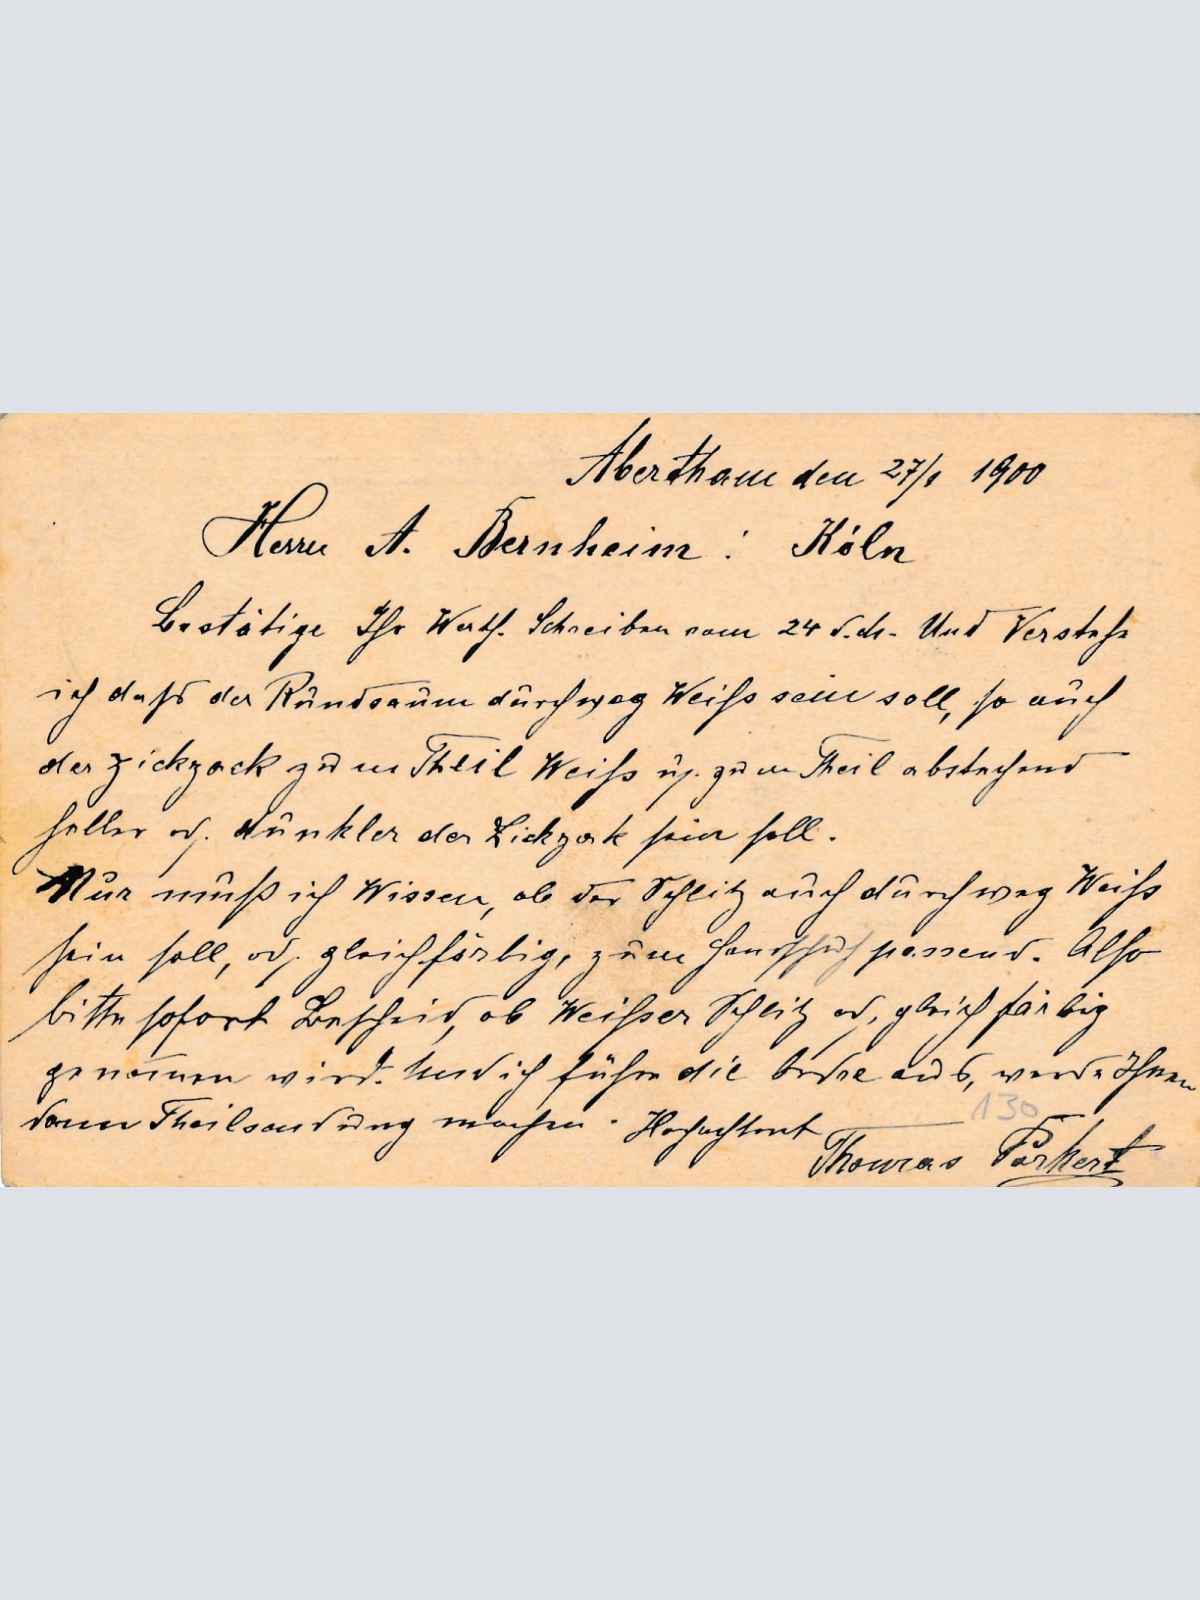 Abertham den 27/1 1900
Herrn A. Bernheim : Köln
Bestätige Ihr Werth. Schreiben vom 24 d. Und Verstehe
ich daß der Rundsaum durchweg Weiß sein soll, so auch
der Zickzack zum Theil Weiß u. zum Theil abstechend
heller od. dunkler der Zickzack sein soll.
Nur muß ich Wissen, ob der Schlitz auch durchweg Weiß
sein soll, od. gleichfärbig, zum Handschuh passend. Also
bitte sofort Bescheid, ob Weißer Schlitz od. gleichfärbig
genommen wird. Und ich führe die Ordre aus, werde Ihnen
dann Theilsendung machen. Hochachtent
130
Thomas Porkert